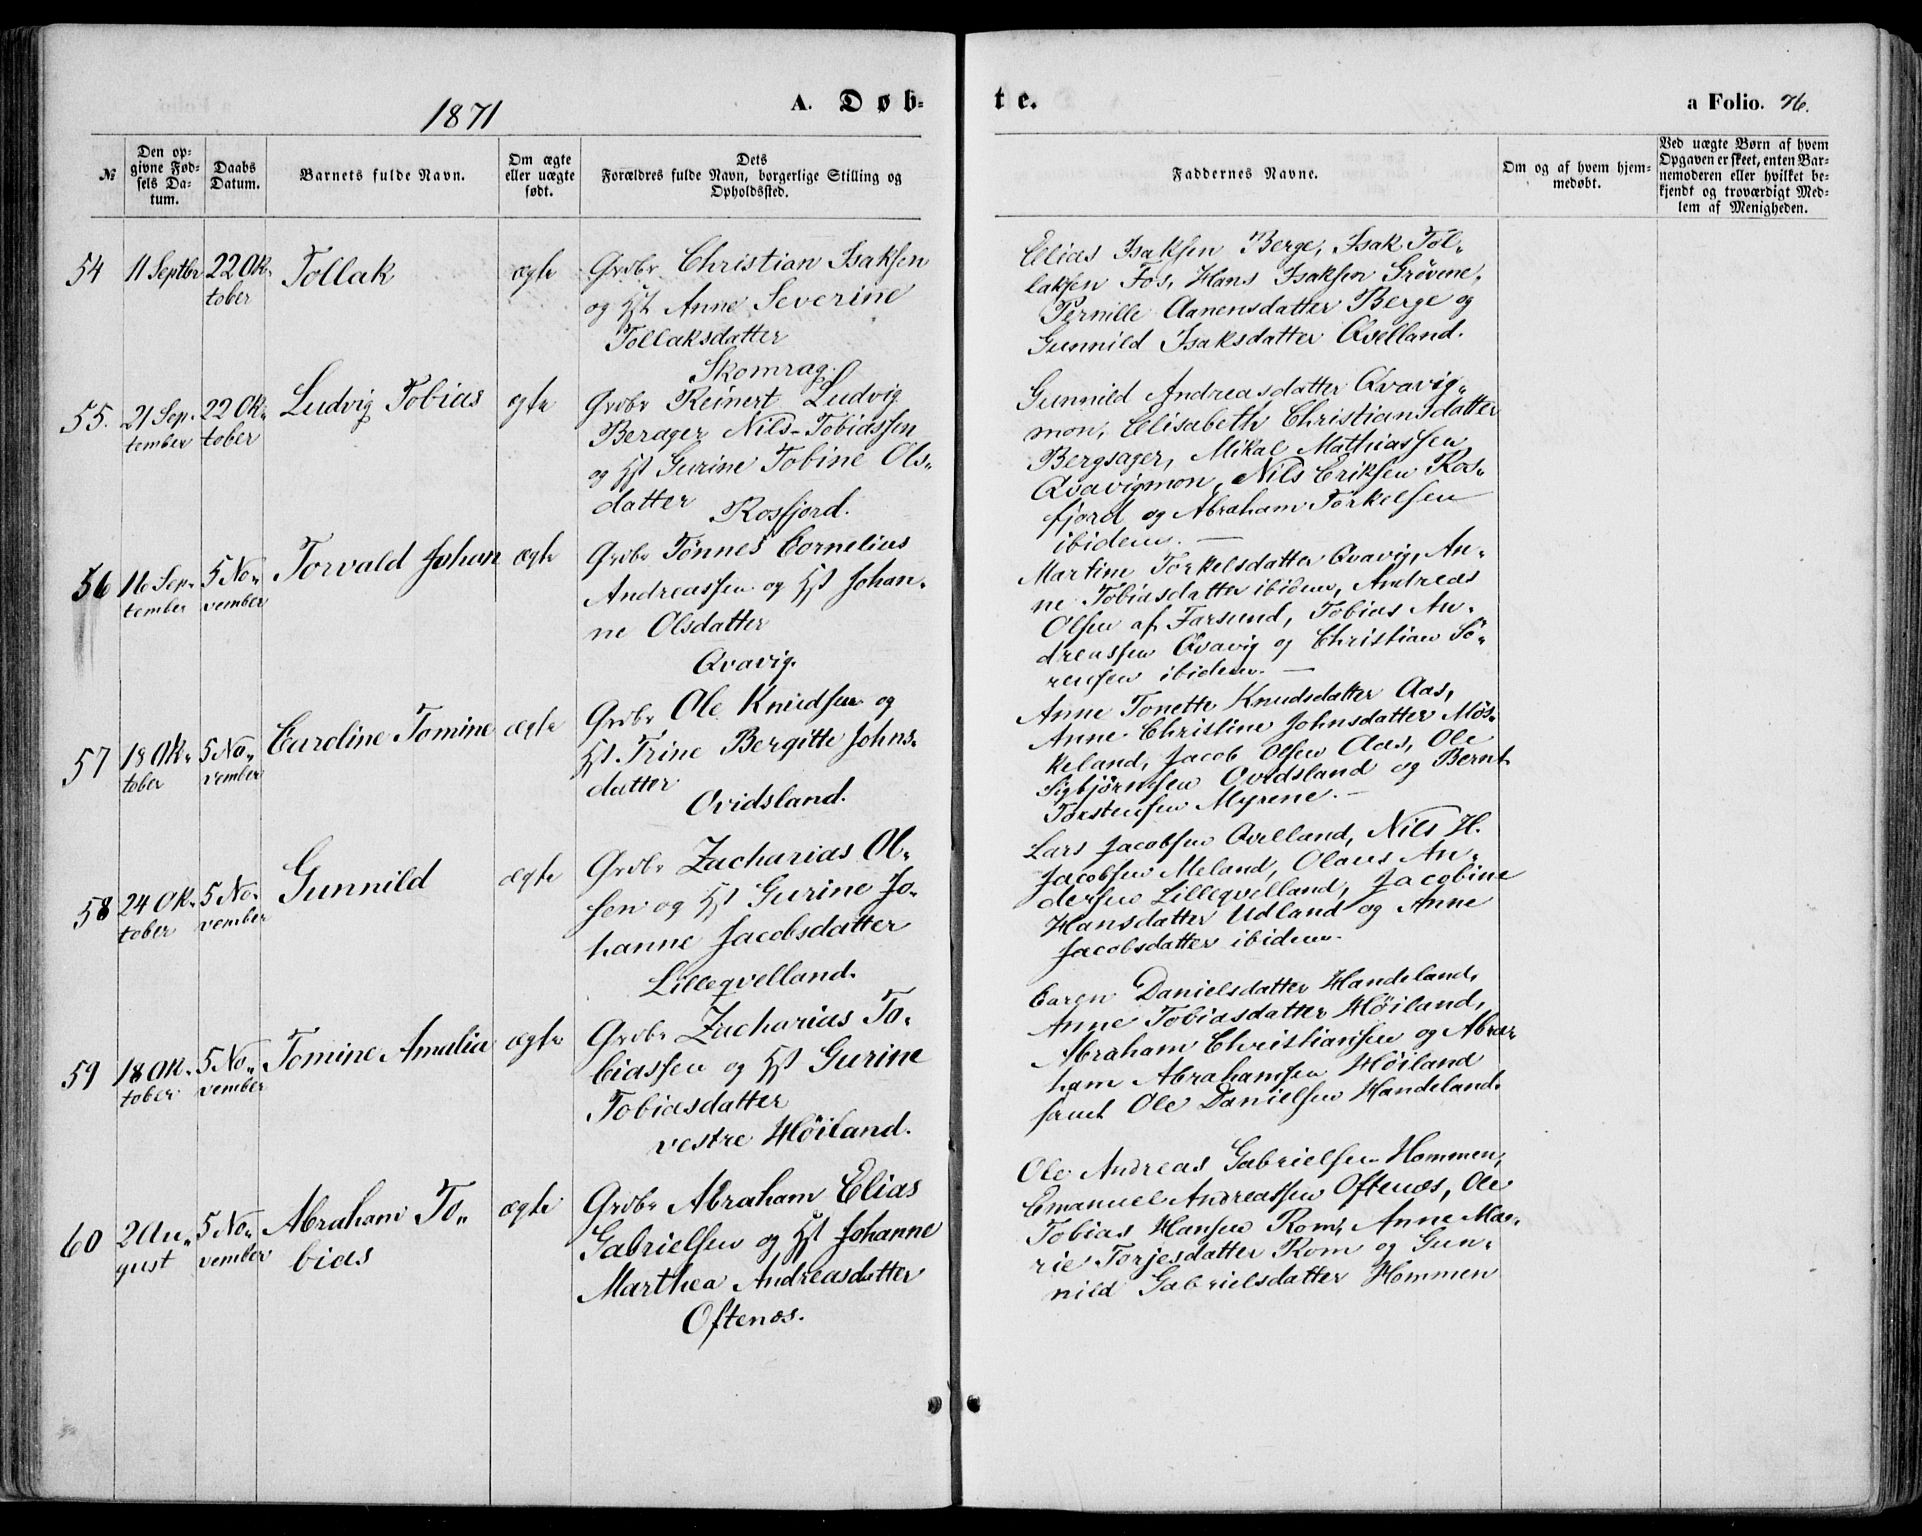 1871
A. Døb-
te.
a Folio. 76.
№
Den op-
givne Fød-
sels Da-
tum.
Daabs
Datum.
Barnets fulde Navn.
Om ægte
eller uægte
født.
Dets
Forældres fulde Navn, borgerlige Stilling og
Opholdssted.
Faddernes Navne.
Om og af hvem hjem-
medøbt.
Ved uægte Børn af hvem
Opgaven er skeet, enten Bar-
nemoderen eller hvilket be-
kjendt og troværdigt Med-
lem af Menigheden.
54
11 Septbr
22 Ok-
tober
Tollak
ægte
Grdbr Christian Isaksen
og Hst Anne Severine
Tollaksdatter
Skomrag.
Elias Isaksen Berge, Isak Tol-
laksen Fos, Hans Isaksen Grövene,
Pernille Aanensdatter Berge og
Gunnild Isaksdatter Qvelland.
55.
21 Sep-
tember
22 Ok-
tober
Ludvig Tobias
ægte
Grdbr Reinert Ludvig
Berager Nils-Tobiassen
og Hst Gurine Tobine Ols-
datter
Rosfjord.
Gunnild Andreasdatter Qvavig-
mon, Elisabeth Christiansdatter
Bergsager, Mikal Mathiassen
Qvavigmon, Nils Eriksen Ros-
fjord og Abraham Torkelsen
ibidem. —
56
16 Sep-
tember
5 No-
vember
Torvald Johan
ægte
Grdbr Tönnes Cornelius
Andreassen og Hst Johan-
ne Olsdatter
Qvavig.
Martine Torkelsdatter Qvavig, An-
ne Tobiasdatter ibidem, Andreas
Olsen af Farsund, Tobias An-
dreassen Qvavig og Christian Sö-
rensen ibidem. —
57
18 Ok-
tober
5 No-
vember
Caroline Tomine
ægte
Grdbr Ole Knudsen og
Hst. Trine Bergitte Johns-
datter
Ovidsland.
Anne Tonette Knudsdatter Aas,
Anne Christine Johnsdatter Møs-
keland, Jacob Olsen Aas, Ole
Sigbjørnsen Ovidsland og Bernt
Torstensen Myrene. —
58
24 Ok-
tober
5 No-
vember
Gunnild
ægte
Grdbr Zacharias Ol-
sen og Hst Gurine Jo-
hanne Jacobsdatter
Lilleqvelland.
Lars Jacobsen Qvelland, Nils H.
Jacobsen Meland, Olaus An-
dersen Lilleqvelland, Jacobine
Hansdatter Udland og Anne
Jacobsdatter ibidem.
59
18 Ok-
tober
5 No-
vember
Tomine Amalia
ægte
Grdbr Zacharias To-
biassen og Hst Gurine
Tobiasdatter
vestre Höiland.
Caren Danielsdatter Handeland,
Anne Tobiasdatter Höiland,
Abraham Christiansen og Abra-
ham Abrahamsen Höiland
samt Ole Danielsen Handeland.
60
2 Au-
gust
5 No-
vember
Abraham To-
bias
ægte
Grdbr Abraham Elias
Gabrielsen og Hst Johanne
Marthea Andreasdatter
Oftenæs.
Ole Andreas Gabrielsen Hommen,
Emanuel Andreassen Oftenæs, Ole
Tobias Hansen Rom, Anne Ma-
rie Torjesdatter Rom og Gun-
nild Gabrielsdatter Hommen